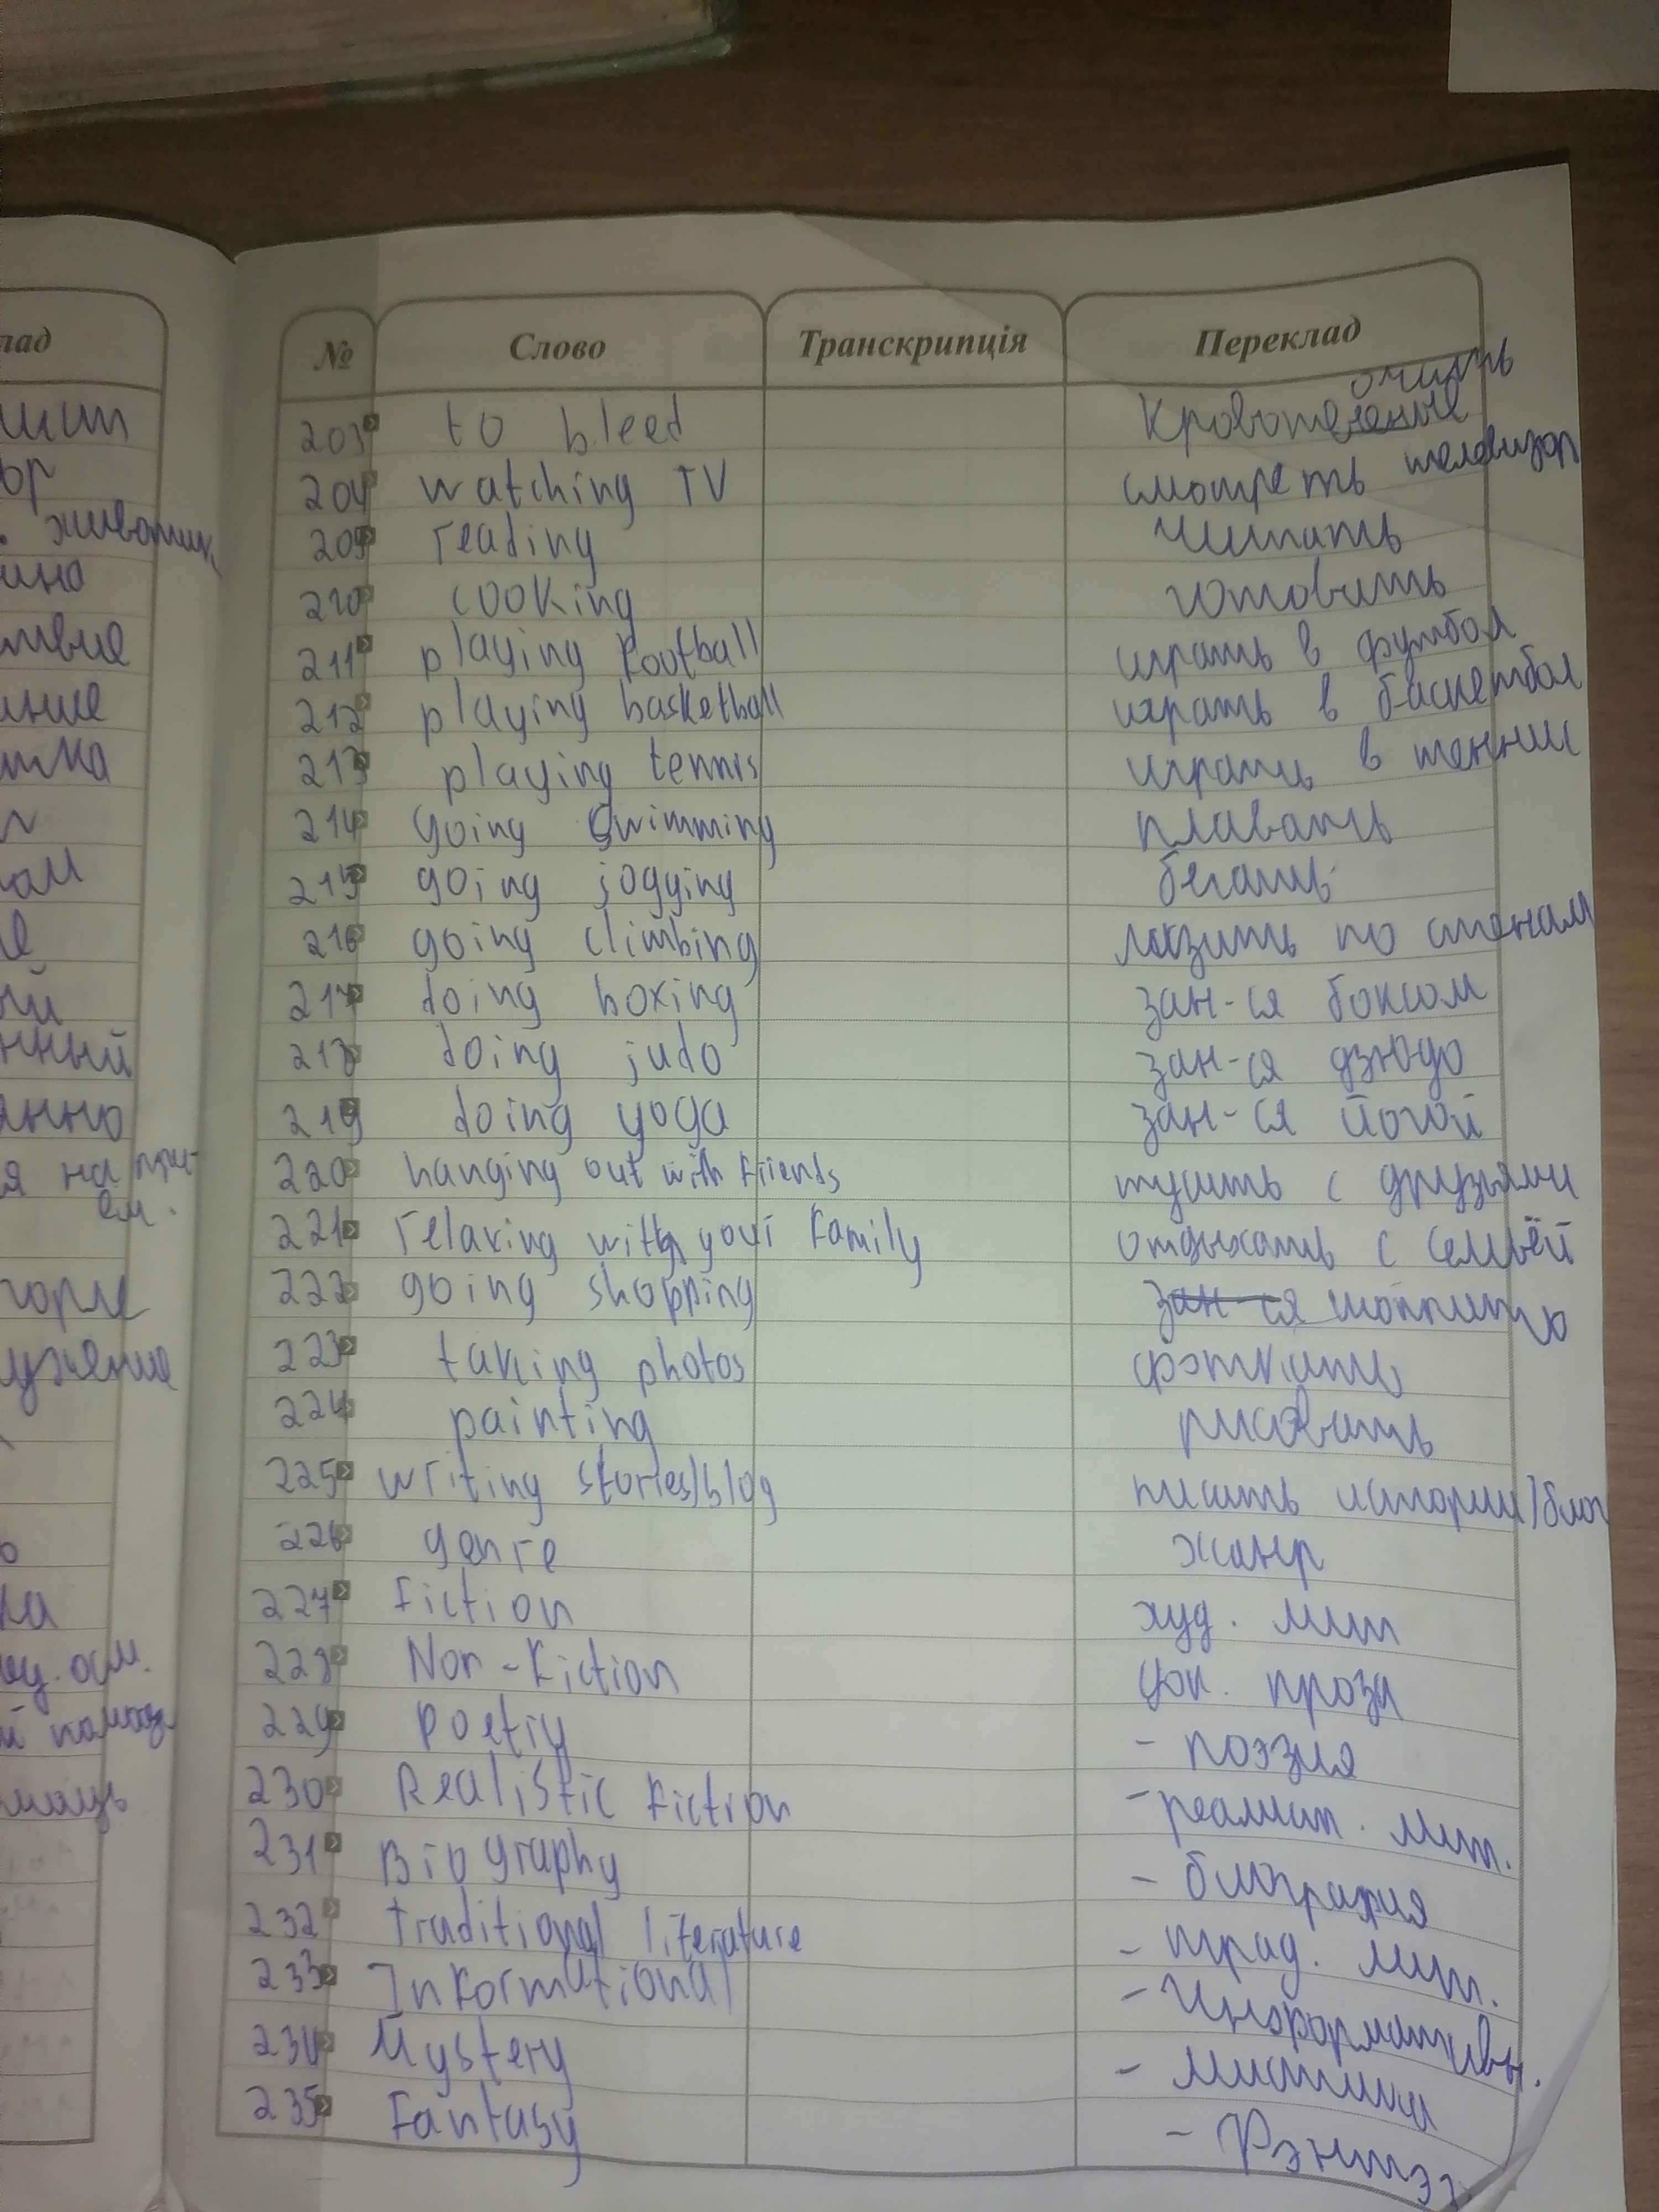 лад
№ Слово Транскрипція Переклад
203 to bleed Кровоточить
204 watching TV смотреть телевизор
209 reading читать
210 cooking готовить
211 playing football играть в футбол
212 playing basketball играть в баскетбол
213 playing tennis играть в теннис
214 going swimming плавать
215 going jogging бегать
216 going climbing лазить по стенам
217 doing boxing зан-ся боксом
218 doing judo зан-ся дзюдо
219 doing yoga зан-ся йогой
220 hanging out with friends тусить с друзьями
221 relaxing with your family отдыхать с семьёй
222 going shopping зан-ся шоппинго
223 taking photos фоткать
224 painting рисовать
225 writing stories/blog писать истории/блог
226 genre жанр
227 Fiction худ. лит
228 Non-fiction док. проза
229 Poetry - поэзия
230 Realistic fiction - реалист. лит.
231 Biography - биография
232 traditional literature - трад. лит.
233 Informational - Информативн.
234 Mystery - мистика
235 Fantasy - Фэнтэз